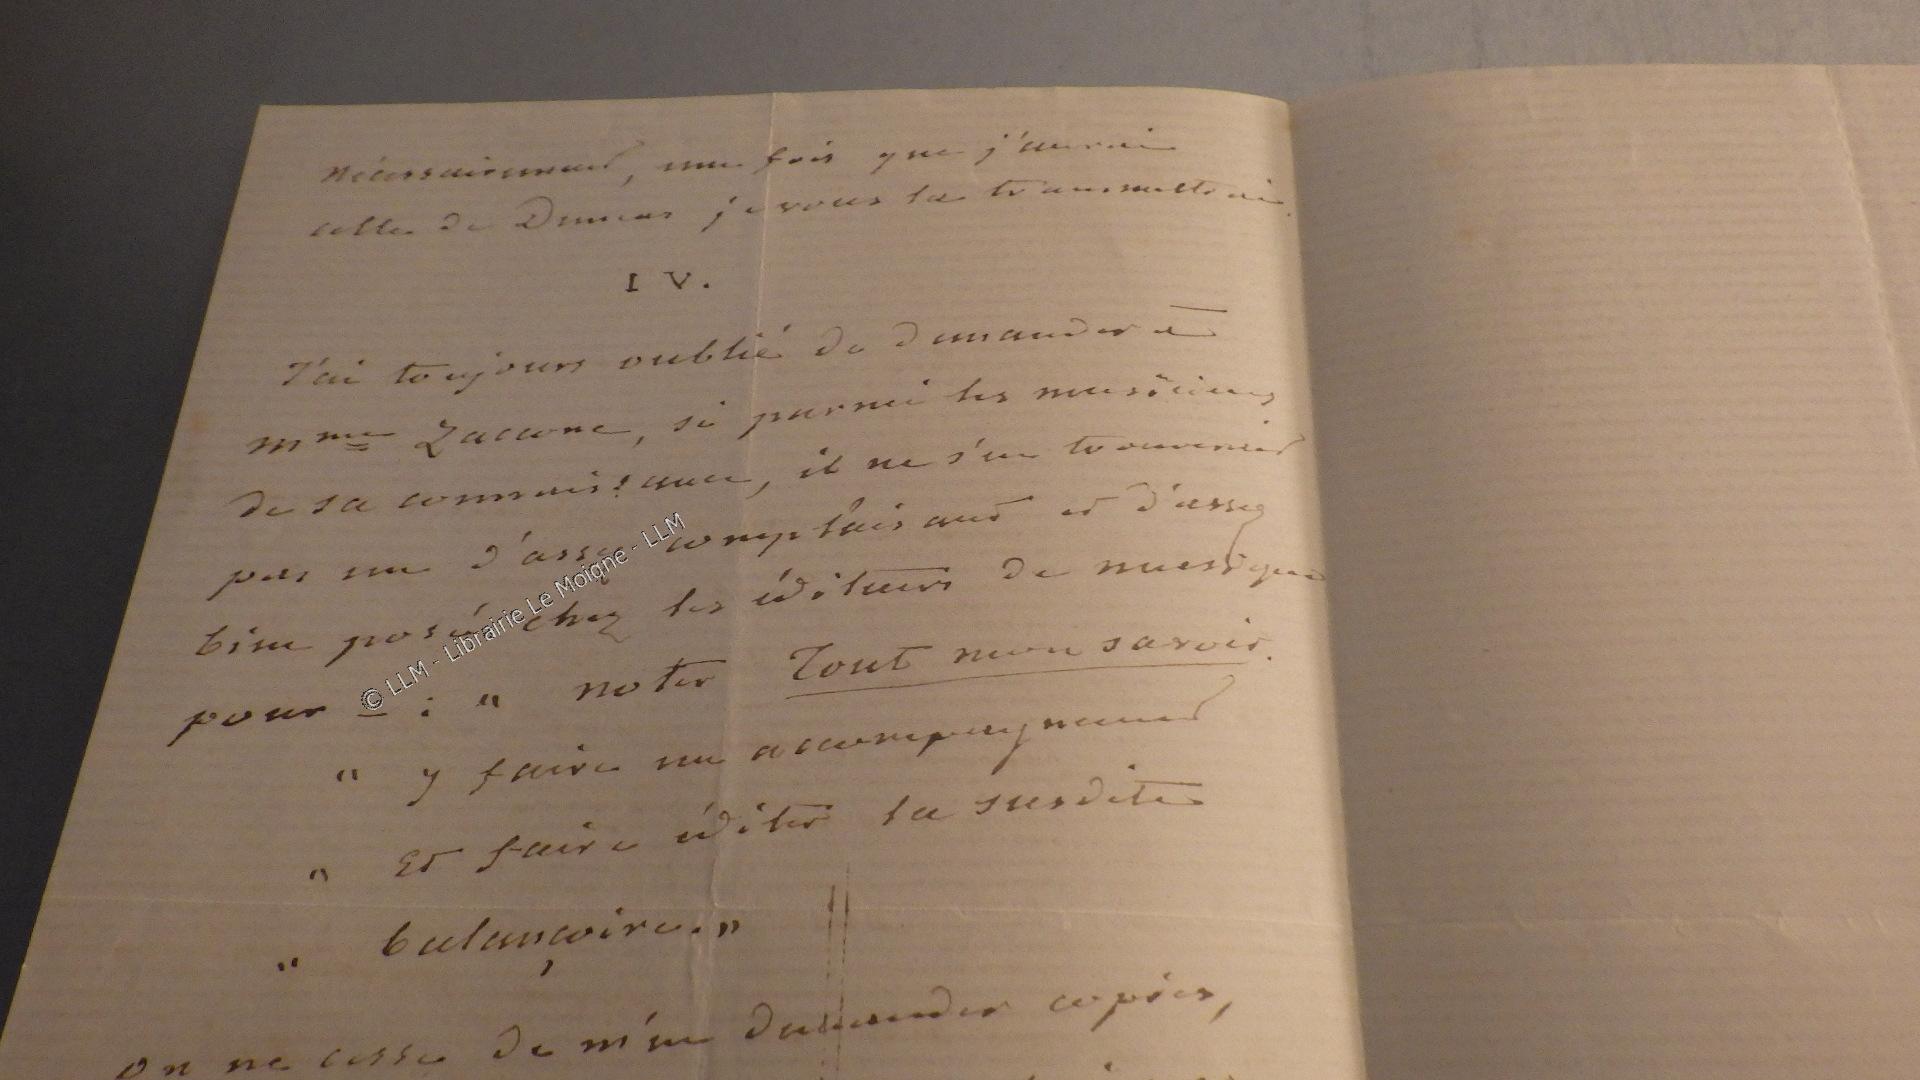 nécessairement, une fois que j'aurai
celle de Dumas je vous la transmettrai.
IV.
J'ai toujours oublié de demander à
Mme Zaccone, si parmi les musiciens
de sa connaissance, il ne s'en trouverait
pas un d'assez complaisant et d'assez
bien posé chez les éditeurs de musique
pour — : " noter Tout mon savoir.
" y faire un accompagnement
" Et faire éditer la susdite
" balançoire. "
On ne cesse de m'en demander copies,
© LLM - Librairie Le Moigne - LLM